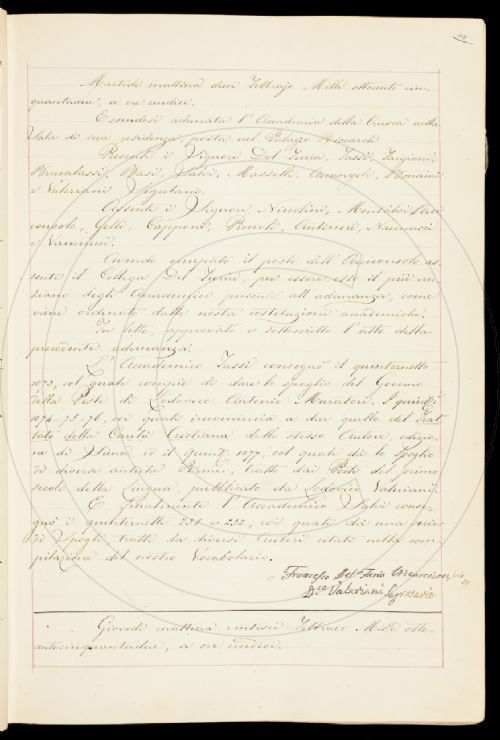 Martedì mattina dieci Febbrajo Mille ottocento cin-
quantadue, a ore undici.
Essendosi adunata l'Accademia della Crusca nella
Sala di sua residenza posta nel Palazzo Riccardi
Presenti i Signori Del Furia, Tassi, Targioni,
Brucalassi, Masselli, Arcangeli,
e Valeriani Segretario.
Assenti i Signori Niccolini, Arci-
consolo, Gelli, Capponi, Nannucci
e Vannucci.
Avendo occupato il posto dell'Arciconsolo as-
sente il Collega Del Furia, per essere esso il più an-
ziano degli Accademici presenti all'adunanza, come
viene ordinato dalle nostre costituzioni accademiche.
Fu letto, approvato e sottoscritto l'atto della
precedente adunanza.
L'Accademico Tassi consegnò il quinternetto
1073, col quale compie di dare lo spoglio del Governo
della Peste di Lodovico Antonio Muratori. I quint.i
1074-75-76, coi quali incomincia a dar quello del Trat-
tato della Carità Cristiana dello stesso Autore, edizio-
ne di e il quint. 1077, col quale dà lo Spoglio
di diverse antiche Rime, tratte dai Poeti del primo
secolo della Lingua, pubblicato da Lodovico Valeriani.
E finalmente l'Accademico conse-
gnò i quinternetti 231 e 232, coi quali dà una serie
di Spogli tratti da diversi Autori citati nella com-
pilazione del nostro Vocabolario.
Francesco Del Furia
D.co Valeriani Segretario
Giovedì mattina Febbraio Mille otto-
centocinquantadue, a ore undici.